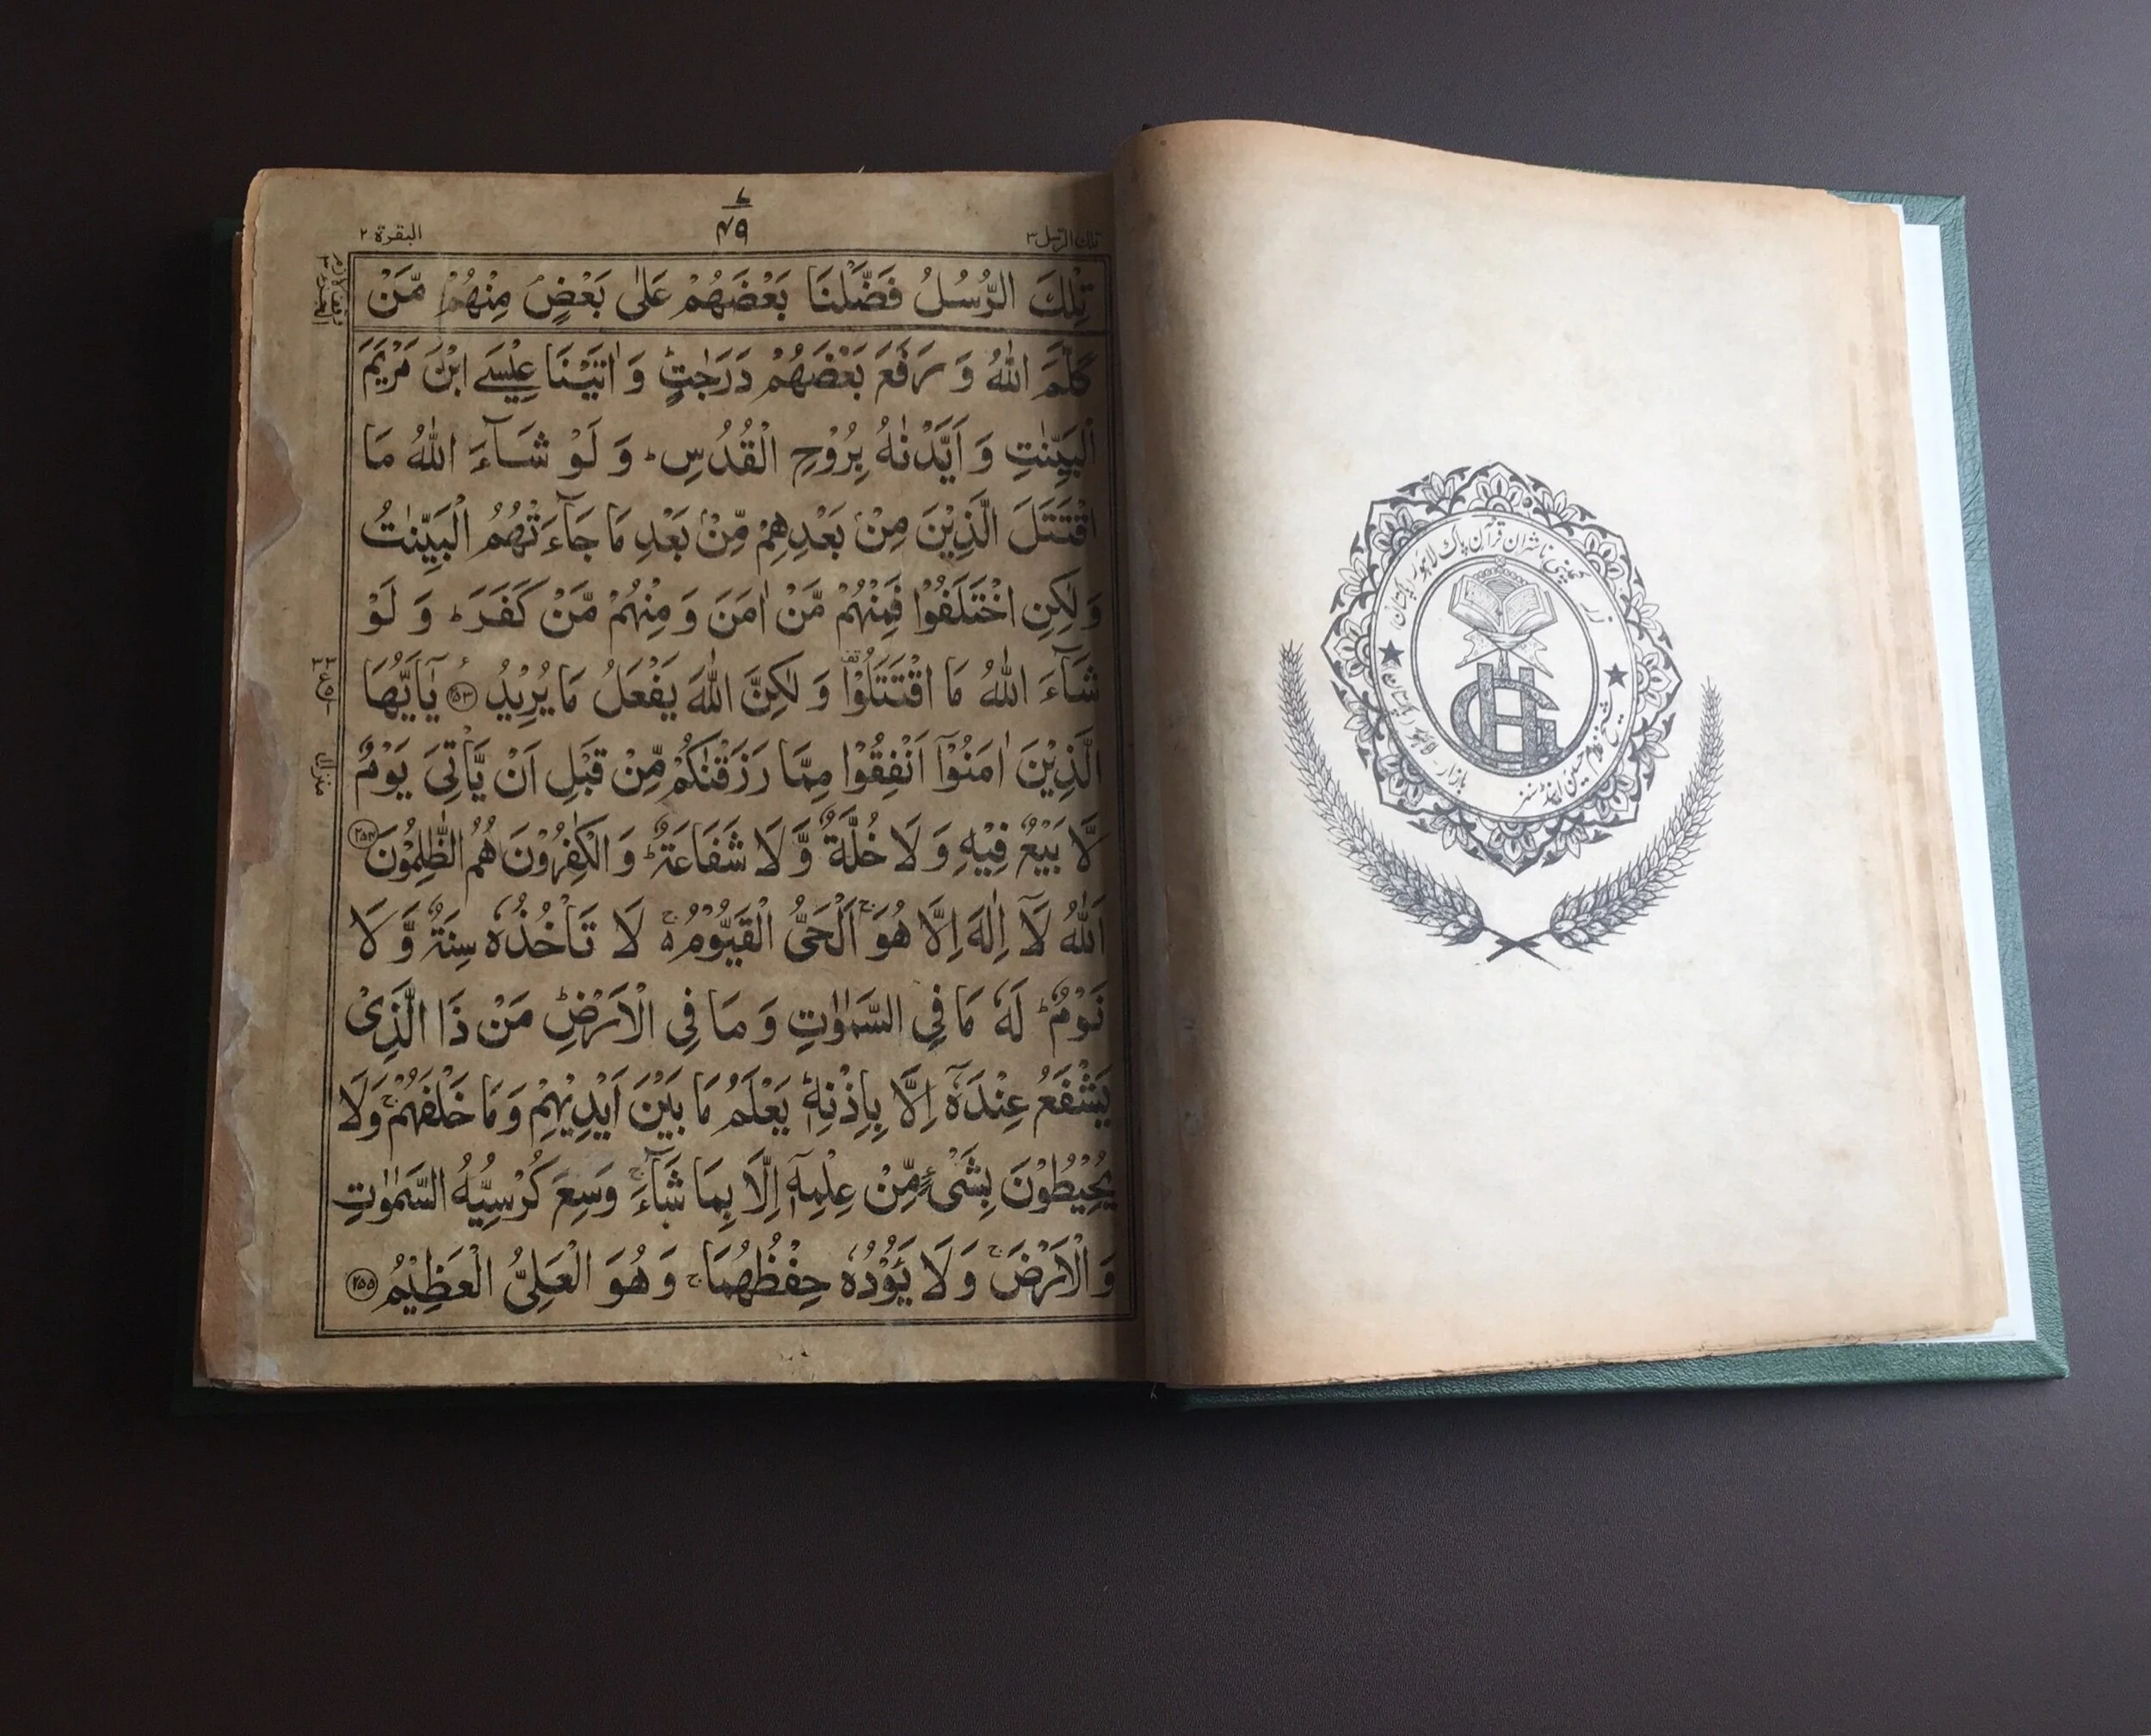 البقرة ٢
تلك الرسل ٣
٤٩
تِلْكَ الرُّسُلُ فَضَّلْنَا بَعْضَهُمْ عَلٰى بَعْضٍ مِنْهُمْ مَّنْ
كَلَّمَ اللّٰهُ وَ رَفَعَ بَعْضَهُمْ دَرَجٰتٍ ؕ وَ اٰتَيْنَا عِيْسَى ابْنَ مَرْيَمَ
الْبَيِّنٰتِ وَ اَيَّدْنٰهُ بِرُوْحِ الْقُدُسِ ؕ وَ لَوْ شَآءَ اللّٰهُ مَا
اقْتَتَلَ الَّذِيْنَ مِنْۢ بَعْدِهِمْ مِّنْۢ بَعْدِ مَا جَآءَتْهُمُ الْبَيِّنٰتُ
وَ لٰكِنِ اخْتَلَفُوْا فَمِنْهُمْ مَّنْ اٰمَنَ وَ مِنْهُمْ مَّنْ كَفَرَ ؕ وَ لَوْ
شَآءَ اللّٰهُ مَا اقْتَتَلُوْا وَ لٰكِنَّ اللّٰهَ يَفْعَلُ مَا يُرِيْدُ ۝۲۵۳ يٰۤاَيُّهَا
الَّذِيْنَ اٰمَنُوْۤا اَنْفِقُوْا مِمَّا رَزَقْنٰكُمْ مِّنْ قَبْلِ اَنْ يَّاْتِيَ يَوْمٌ
لَّا بَيْعٌ فِيْهِ وَ لَا خُلَّةٌ وَّ لَا شَفَاعَةٌ ؕ وَ الْكٰفِرُوْنَ هُمُ الظّٰلِمُوْنَ ۝۲۵۴
اَللّٰهُ لَاۤ اِلٰهَ اِلَّا هُوَ ۚ اَلْحَيُّ الْقَيُّوْمُ ۚ لَا تَاْخُذُهٗ سِنَةٌ وَّ لَا
نَوْمٌ ؕ لَهٗ مَا فِي السَّمٰوٰتِ وَ مَا فِي الْاَرْضِ ؕ مَنْ ذَا الَّذِيْ
يَشْفَعُ عِنْدَهٗۤ اِلَّا بِاِذْنِهٖ ؕ يَعْلَمُ مَا بَيْنَ اَيْدِيْهِمْ وَ مَا خَلْفَهُمْ ۚ وَ لَا
يُحِيْطُوْنَ بِشَيْءٍ مِّنْ عِلْمِهٖۤ اِلَّا بِمَا شَآءَ ۚ وَسِعَ كُرْسِيُّهُ السَّمٰوٰتِ
وَ الْاَرْضَ ۚ وَ لَا يَـُٔوْدُهٗ حِفْظُهُمَا ۚ وَ هُوَ الْعَلِيُّ الْعَظِيْمُ ۝۲۵۵
منزل ا
کمپنی ناشران قرآن پاک لاہور پاکستان
شیخ غلام حسین اینڈ سنز
بازار - لاہور پاکستان
GH